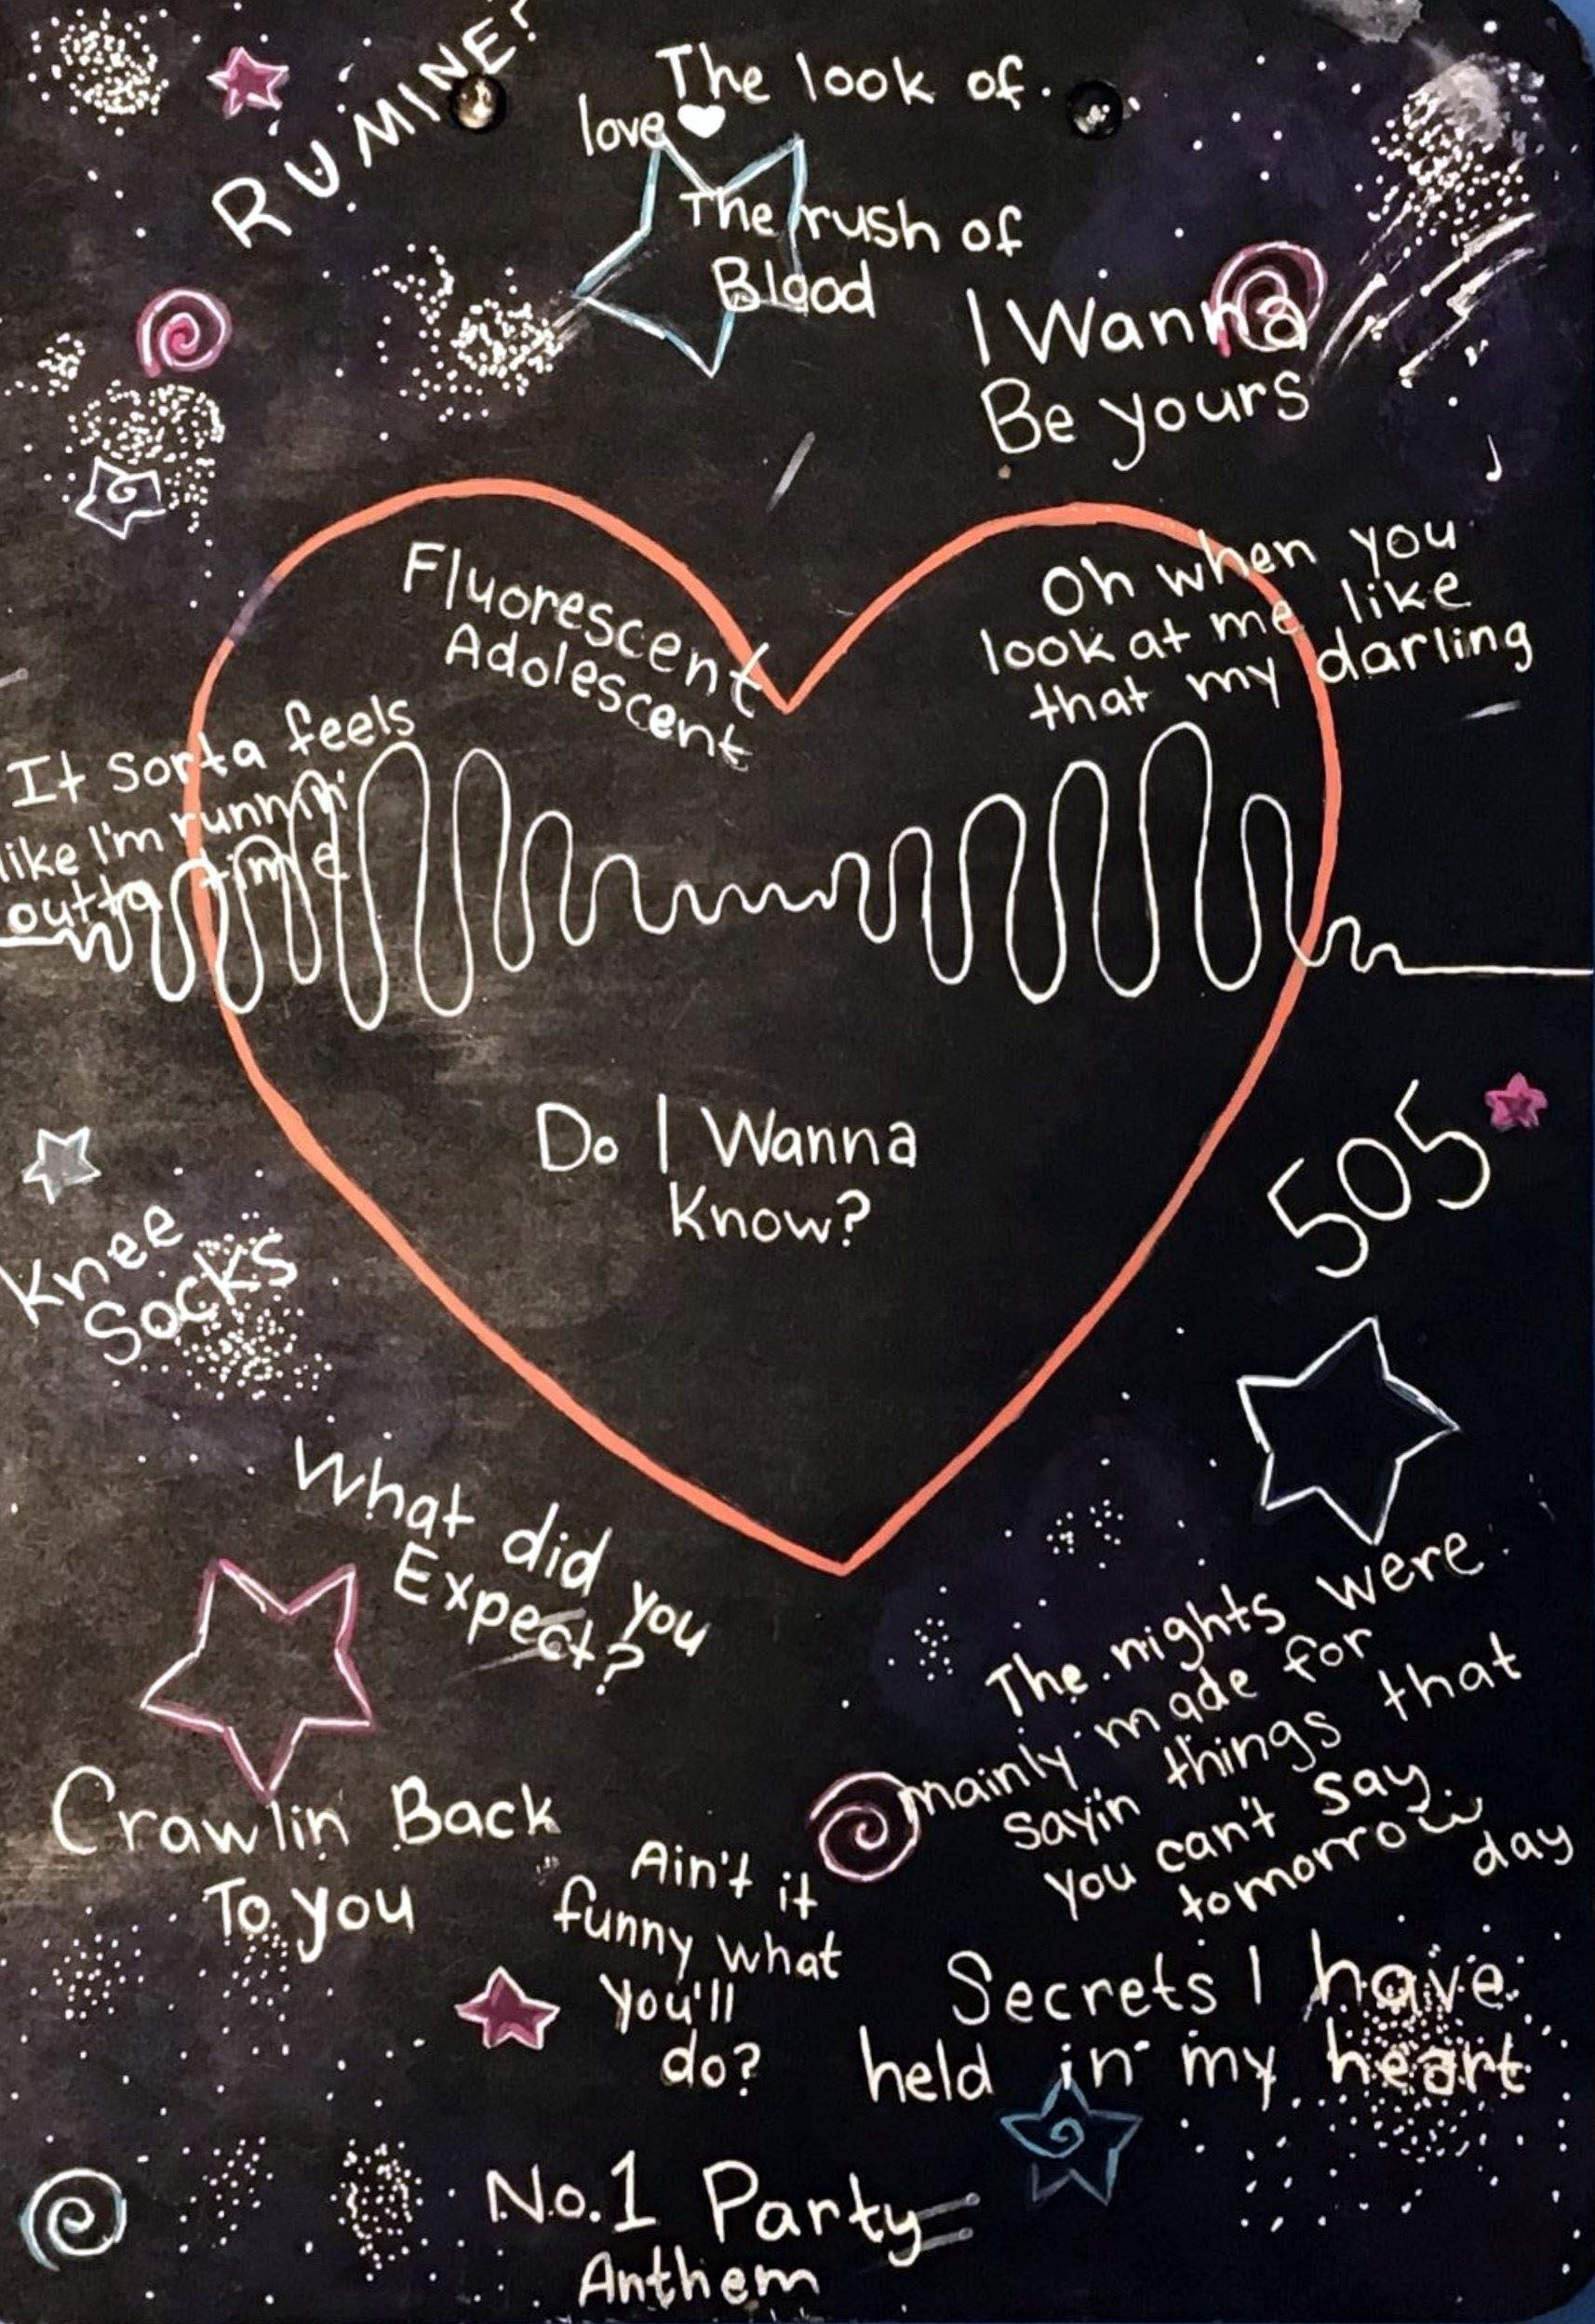 R U MINE?
The look of
love
The rush of
Blood
I Wanna
Be yours
Fluorescent
Adolescent
Oh when you
look at me like
that my darling
It sorta feels
like I'm runnin'
outta time
Do I Wanna
Know?
505
Knee
Socks
What did you
Expect?
The nights were
mainly made for
sayin things that
you can't say
tomorrow day
Crawlin Back
To you
Ain't it
funny what
you'll
do?
Secrets I have
held in my heart
No.1 Party
Anthem